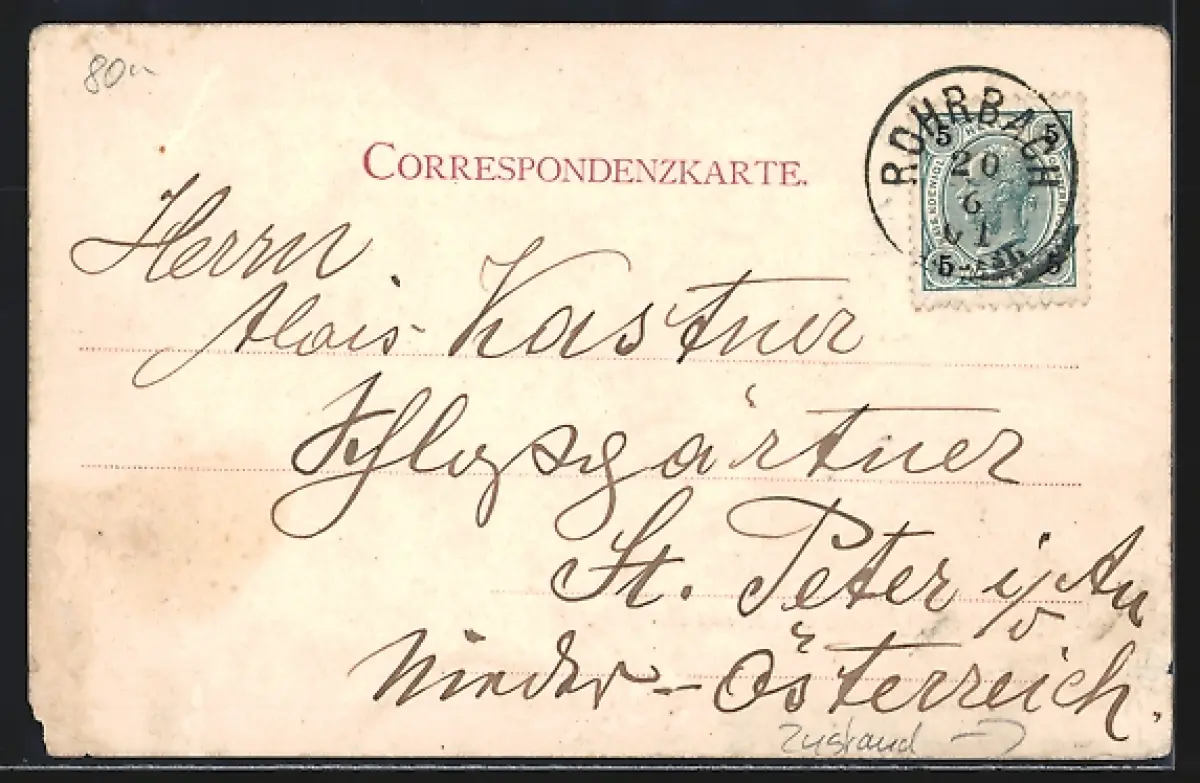 80
CORRESPONDENZKARTE.
ROHRBACH
20
6
01
5 5
5 5
Herrn
Alois Kastner
Schloßgärtner
St. Peter i/d Au
Nieder-Österreich.
Zustand →